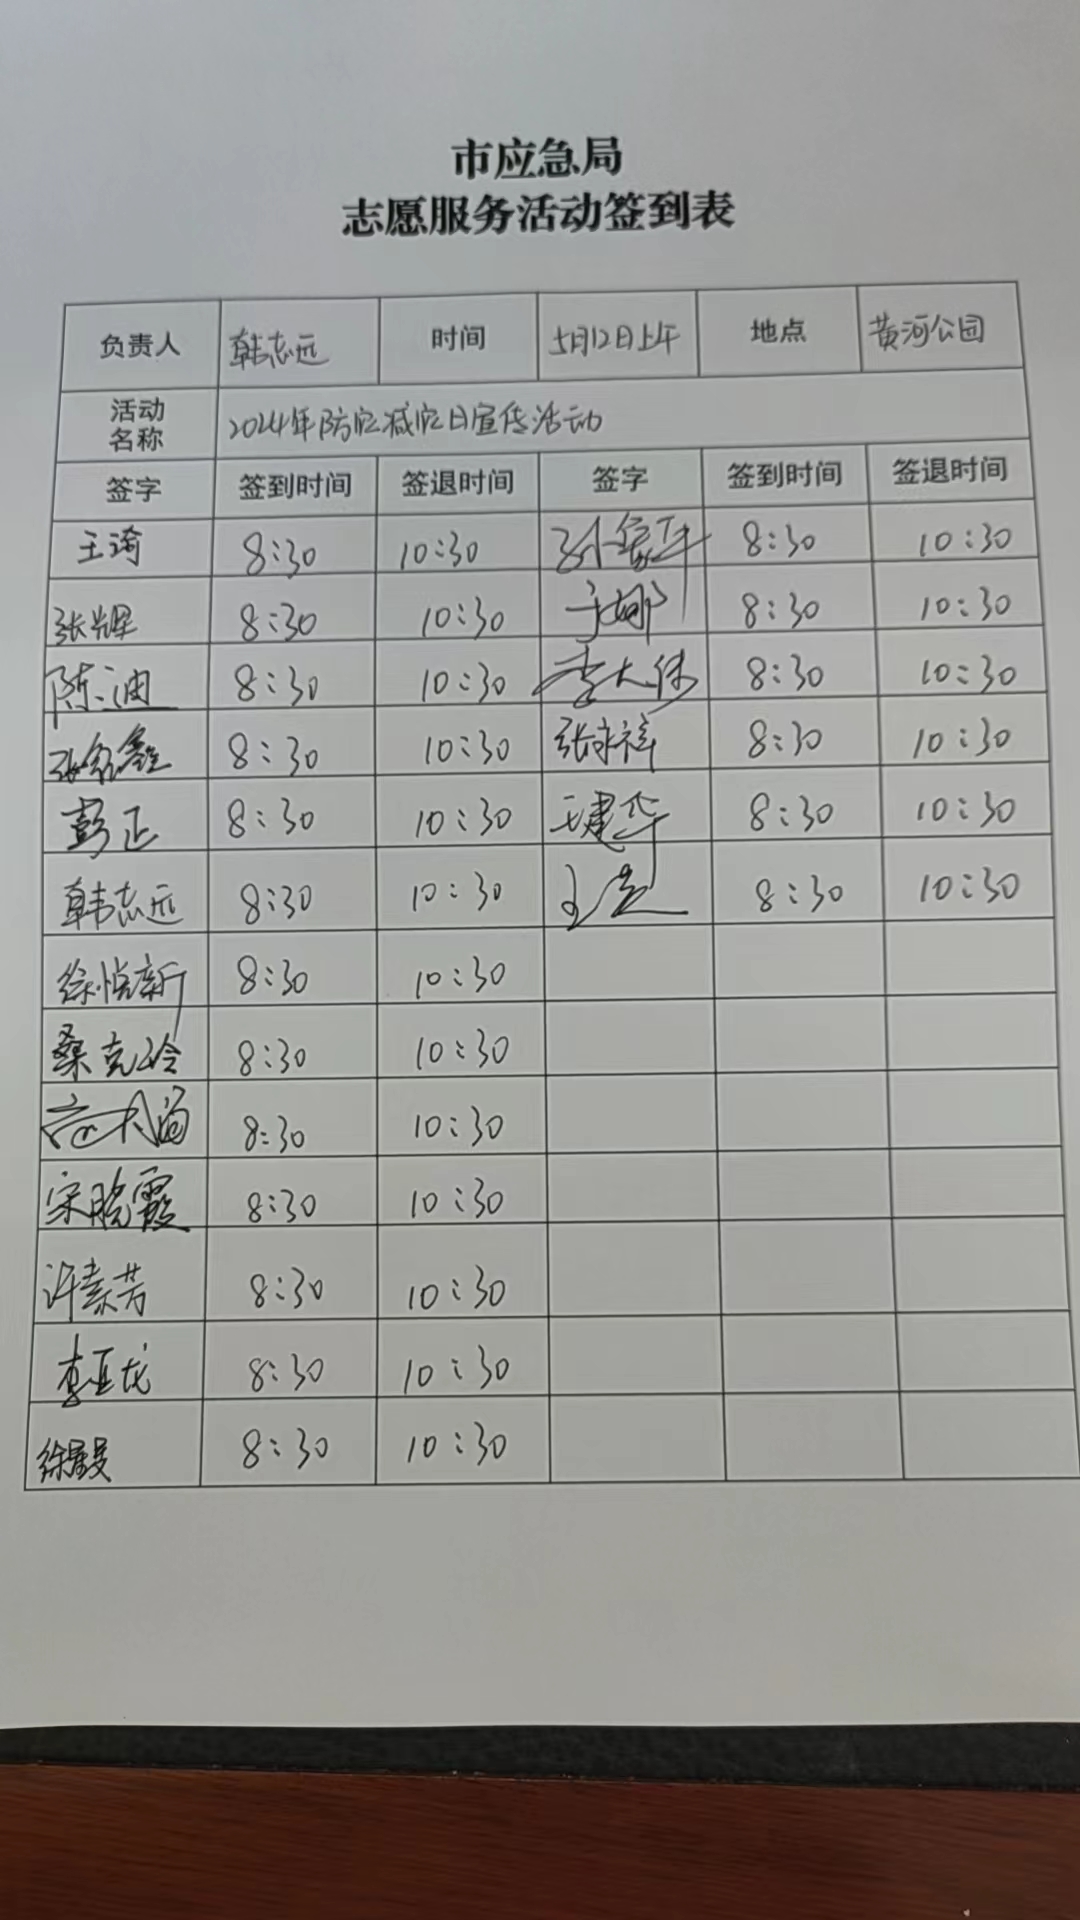 市应急局
志愿服务活动签到表
负责人 韩志远 时间 5月12日上午 地点 黄河公园
活动名称 2024年防灾减灾日宣传活动
签字 签到时间 签退时间 签字 签到时间 签退时间
王漪 8:30 10:30 8:30 10:30
张辉 8:30 10:30 于娜 8:30 10:30
陈迪 8:30 10:30 李大伟 8:30 10:30
8:30 10:30 张永祥 8:30 10:30
彭正 8:30 10:30 王建华 8:30 10:30
韩志远 8:30 10:30 8:30 10:30
徐悦新 8:30 10:30
桑克玲 8:30 10:30
8:30 10:30
宋晓霞 8:30 10:30
许素芳 8:30 10:30
李亚龙 8:30 10:30
8:30 10:30